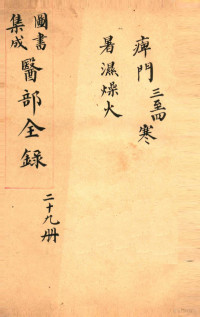 痺門 三至四 寒
暑濕燥火
圖書
集成
醫部全录
二十九册